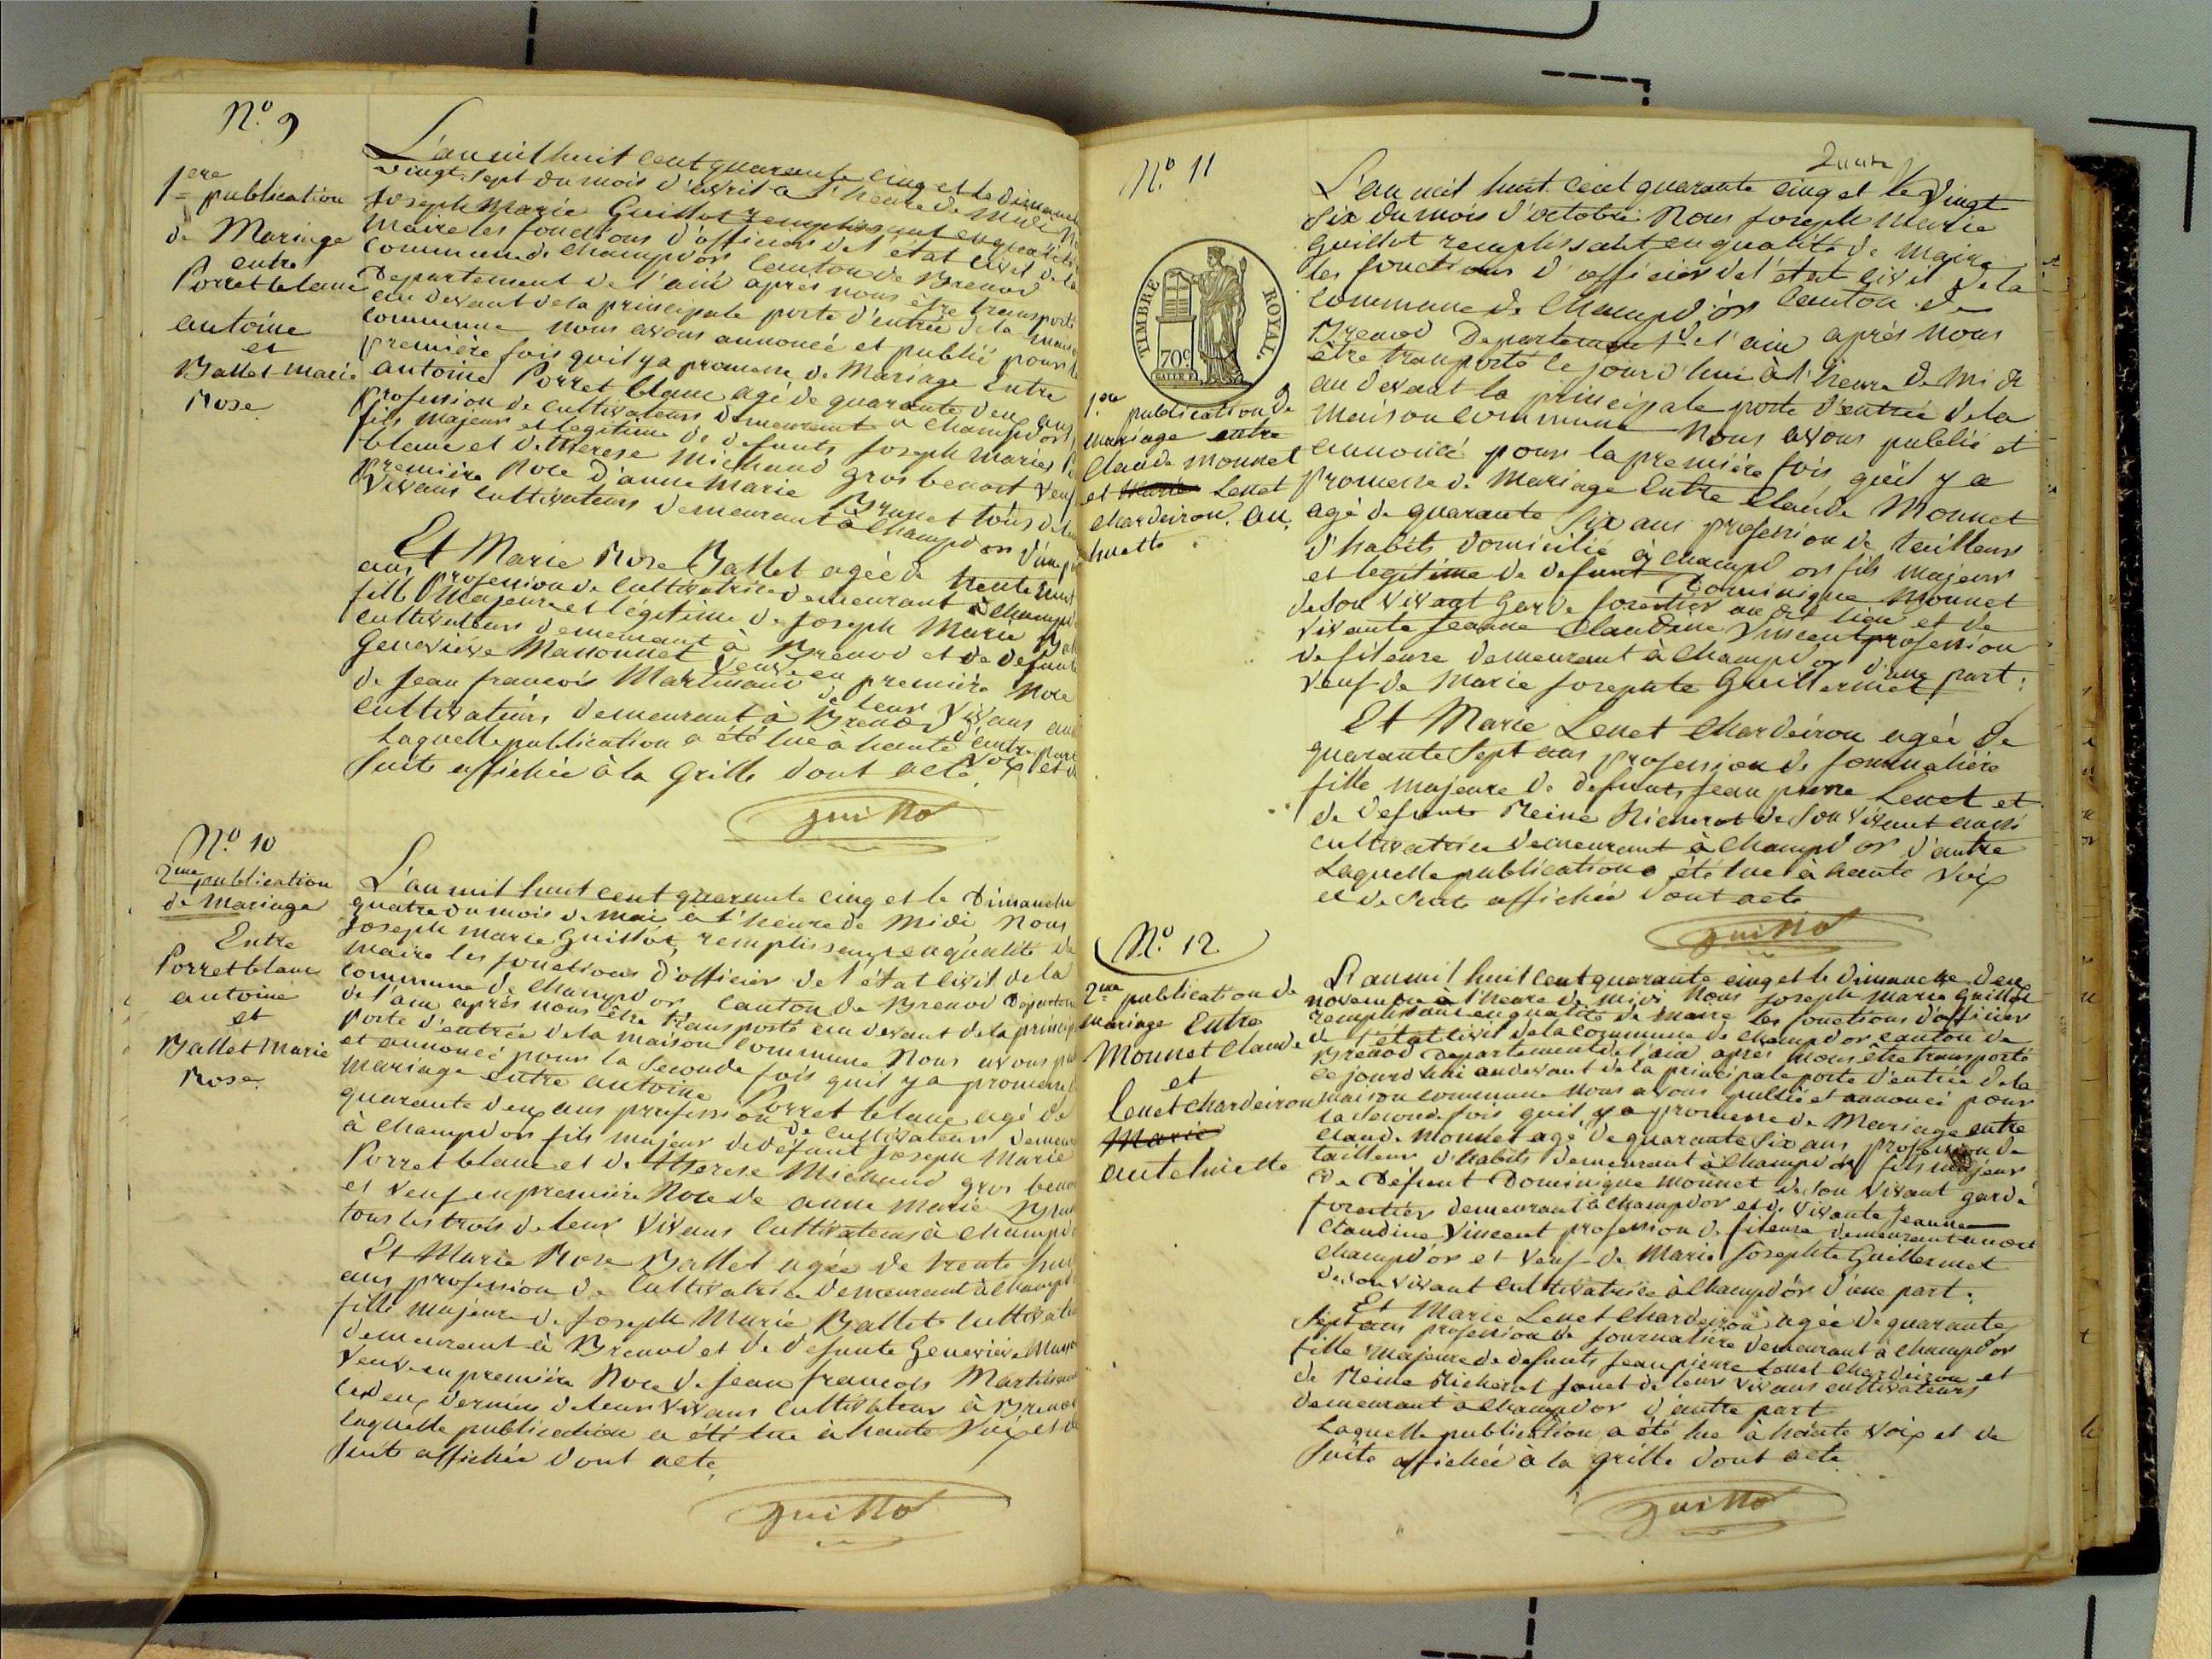 N.º 9
1ere publication
de Mariage
entre
Porret blanc
antoine
et
Ballet marie
Rose
L'an mil huit cent quarante cinq et le dimanche
vingt sept du mois d'avril à l'heure de Midi
Joseph Marie Guillot remplissant en qualité
Maire les fonctions d'officier de l'état civil de la
commune de Champd'or Canton de Brenod
Departement de l'ain après nous être transporté
au devant de la principale porte d'entrée de la
commune nous avons annoncé et publié pour
première fois qu'il y a promesse de Mariage Entre
antoine Porret blanc agé de quarante deux ans
profession de cultivateur demeurant à Champd'or
fils majeur et legitime de defunts Joseph Marie
blanc et de therese Michaud gros benoit veuf
première Noce d'anne Marie Brunet tous de
vivans cultivateurs demeurant à Champd'or d'une
Et Marie Rose Ballet agée de trente huit
ans profession de Cultivatrice demeurant à Champd
fille Majeure et légitime de Joseph Marie
cultivateur demeurant à Brenod et de defunte
Geneviève Massonnet veuve en première Noce
de Jean françois Martinand de leur vivans
cultivateurs demeurant à Brenod d'autre part
Laquelle publication a été lue à haute voix et
suite affichée à la Grille dont acte
Guillot
N.º 10
2me publication
de Mariage
Entre
Porret blanc
antoine
et
Ballet Marie
Rose
L'an mil huit cent quarante cinq et le Dimanche
quatre du mois de mai à l'heure de Midi Nous
Joseph Marie Guillot, remplissant en qualité de
maire les fonctions d'officier de l'état civil de la
commune de Champd'or Canton de Brenod
de l'ain après nous être transporté au devant de la
porte d'entrée de la maison Commune Nous avons
et annoncé pour la Seconde fois qu'il y a promesse
mariage entre antoine Porret blanc agé de
quarante deux ans profession de cultivateur
à Champd'or fils majeur de défunt Joseph Marie
Porret blanc et de therese Michaud gros
et veuf en première Noce de anne Marie
tous les trois de leur vivans Cultivateurs à Champd
Et Marie Rose Ballet agée de trente huit
ans profession de Cultivatrice demeurant à Champd
fille Majeure de Joseph Marie Ballet
demeurant à Brenod et de defunte Geneviève
Veuve en première Noce de Jean françois
les deux derniers de leur vivans Cultivateur à
laquelle publication a été lue à haute voix et
suite affichée dont acte,
Guillot
N.º 11
TIMBRE ROYAL.
70c
1.ere
publication de
mariage entre
Claude Monnet
et Marie Lenet
Chardeiron. an.
huette
L'an mil huit cent quarante cinq et le Vingt
Six du mois d'octobre Nous Joseph Marie
Guillot remplissant en qualité de Maire
les fonctions d'officier de l'état civil de la
commune de Champd'or Canton de
Brenod Departement de l'ain après nous
être transporté ce jour d'hui à l'heure de Midi
au devant la principale porte d'entrée de la
Maison Commune Nous avons publié et
annoncé pour la première fois qu'il y a
promesse de Mariage Entre Claude Monnet
agé de quarante Six ans profession de tailleur
d'habits domicilié à Champd'or fils Majeur
et legitime de defunt Dominique Monnet
de Son vivant Garde forestier au dit lieu et de
vivante Jeanne Claudine Vincent profession
de fileuse demeurant à Champd'or d'une part:
veuf de Marie Josephte Guillermet
Et Marie Lenet Chardeiron agée de
quarante Sept ans profession de Journalière
fille majeure de defunts Jean pierre Lenet et
de Defunte Reine Richerot de Son vivant aussi
cultivatrice demeurant à Champd'or d'autre
Laquelle publication a été lue à haute voix
et de Suite affichée dont acte
Guillot
N.º 12
2me publication de
mariage Entre
Monnet Claude
et
lenet chardeiron
Marie
antehuette
L'an mil huit cent quarante cinq et le dimanche deux
novembre à l'heure de midi Nous Joseph Marie Guillot
remplissant en qualité de Maire les fonctions d'officier
de l'état civil de la commune de Champd'or canton de
Brenod Departement de l'ain après nous être transporté
ce jourd'hui au devant de la principale porte d'entrée de la
maison commune Nous avons publié et annoncé pour
la Seconde fois qu'il y a promesse de Mariage entre
Claude Monnet agé de quarante Six ans profession de
tailleur d'habits demeurant à Champd'or fils majeur
De Défunt Dominique Monnet de Son Vivant garde
forestier demeurant à Champd'or et de Vivante Jeanne
Claudine Vincent profession de fileuse demeurant
Champd'or et Veuf de Marie Josephte Guillermet
de Son Vivant Cultivatrice à Champd'or d'une part.
Et Marie Lenet Chardeiron agée de quarante
Sept ans profession de Journalière demeurant à Champd'or
fille Majeure de defunts Jean pierre Lenet Chardeiron et
de Reine Richerot de leur vivans cultivateurs
demeurant à Champd'or d'autre part
Laquelle publication a été lue à haute voix et de
Suite affichée à la grille dont acte
Guillot